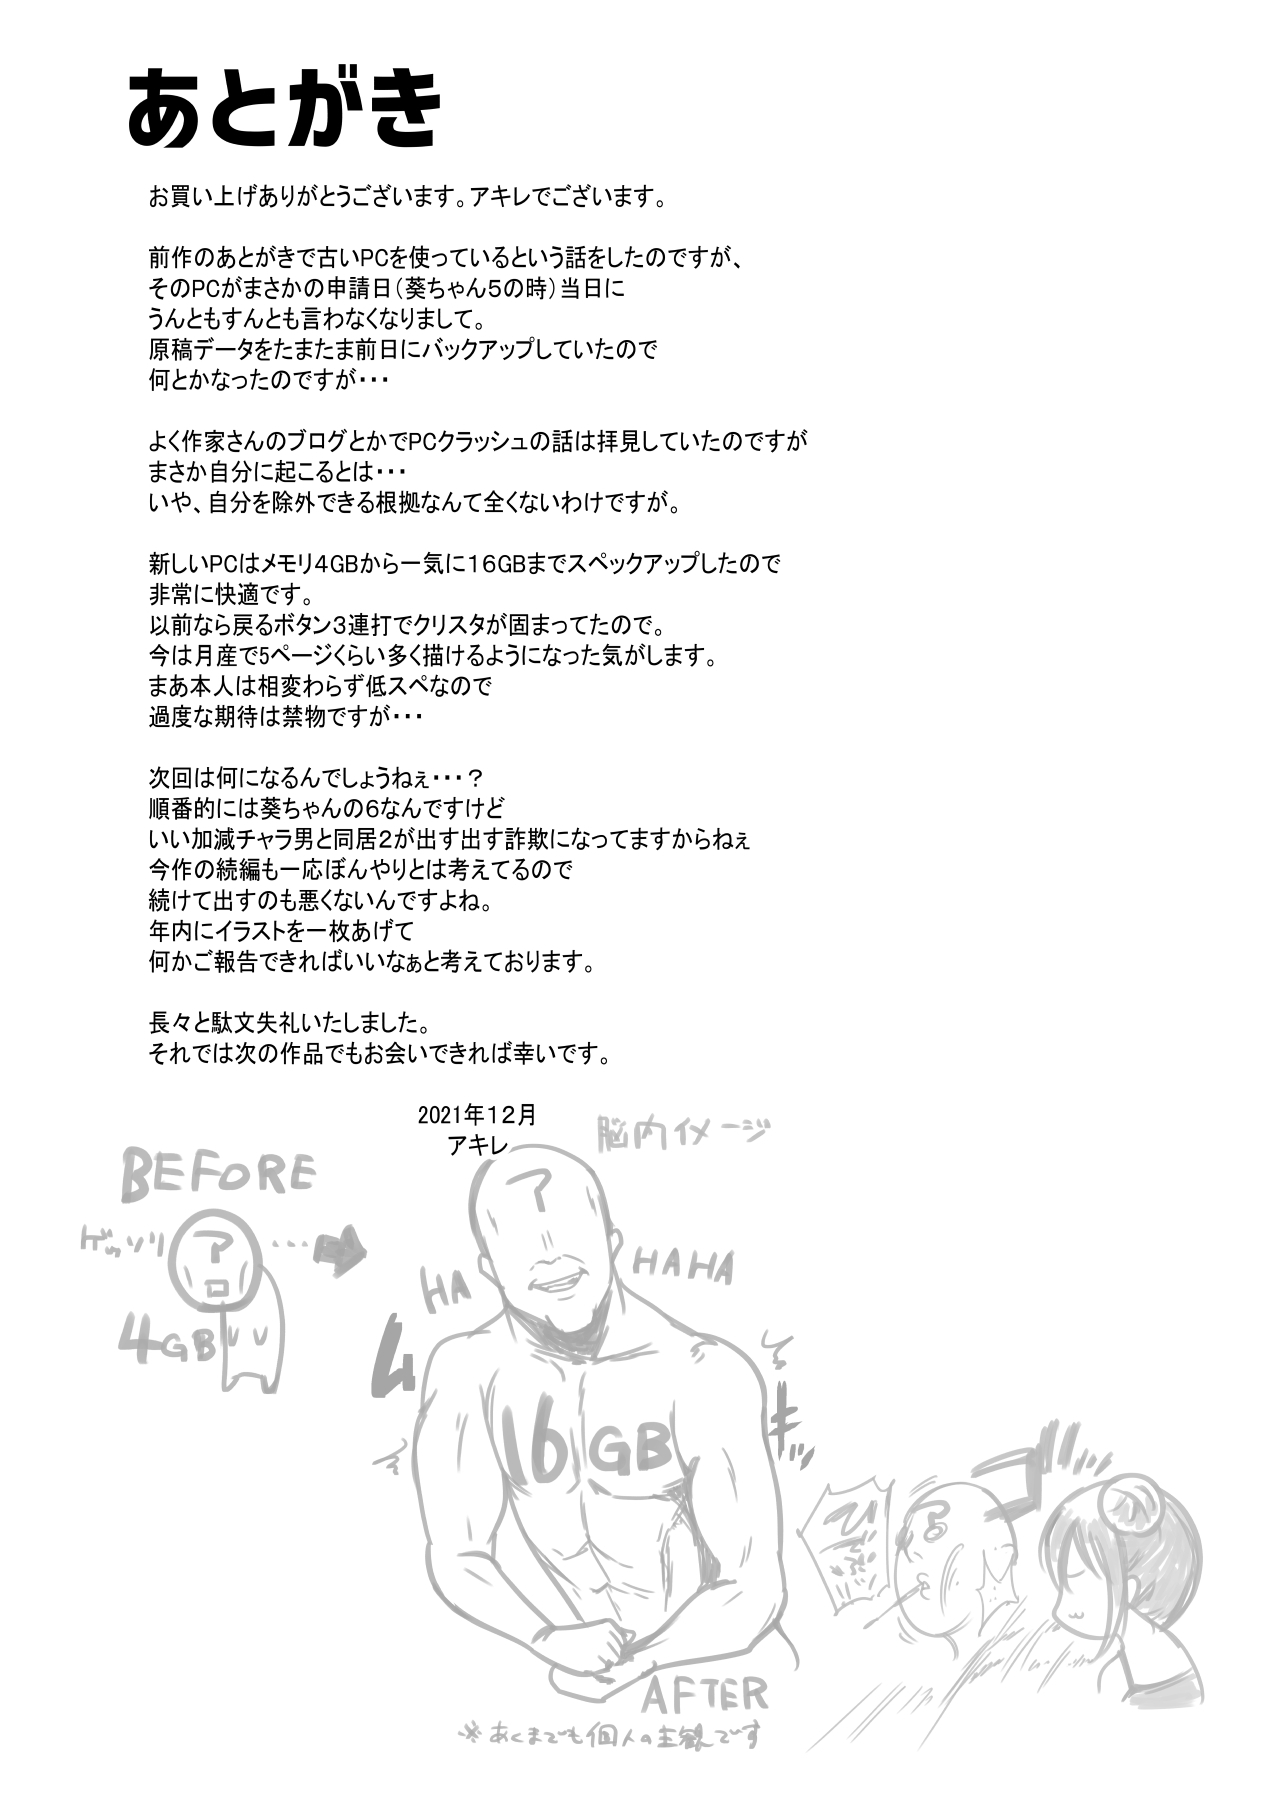 あとがき
お買い上げありがとうございます。アキレでございます。
前作のあとがきで古いPCを使っているという話をしたのですが、
そのPCがまさかの申請日（葵ちゃん5の時）当日に
うんともすんとも言わなくなりまして。
原稿データをたまたま前日にバックアップしていたので
何とかなったのですが・・・
よく作家さんのブログとかでPCクラッシュの話は拝見していたのですが
まさか自分に起こるとは・・・
いや、自分を除外できる根拠なんて全くないわけですが。
新しいPCはメモリ4GBから一気に16GBまでスペックアップしたので
非常に快適です。
以前なら戻るボタン3連打でクリスタが固まってたので。
今は月産で5ページくらい多く描けるようになった気がします。
まあ本人は相変わらず低スペなので
過度な期待は禁物ですが・・・
次回は何になるんでしょうねぇ・・・？
順番的には葵ちゃんの6なんですけど
いい加減チャラ男と同居2が出す出す詐欺になってますからねぇ
今作の続編も一応ぼんやりとは考えてるので
続けて出すのも悪くないんですよね。
年内にイラストを一枚あげて
何かご報告できればいいなぁと考えております。
長々と駄文失礼いたしました。
それでは次の作品でもお会いできれば幸いです。
2021年12月
アキレ
脳内イメージ
BEFORE
ゲッソリ
ア
ロ
・・・
4GB
ア
HA
HAHA
ムキッ
16GB
AFTER
※あくまでも個人の主観です
る